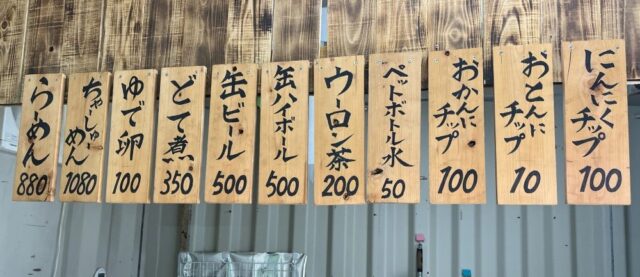 らーめん
880
ちゃーしゅー
めん
1080
ゆで卵
100
どて煮
350
缶ビール
500
缶ハイボール
500
ウーロン茶
200
ペットボトル水
50
おかんに
チップ
100
おとんに
チップ
10
にんにく
チップ
100